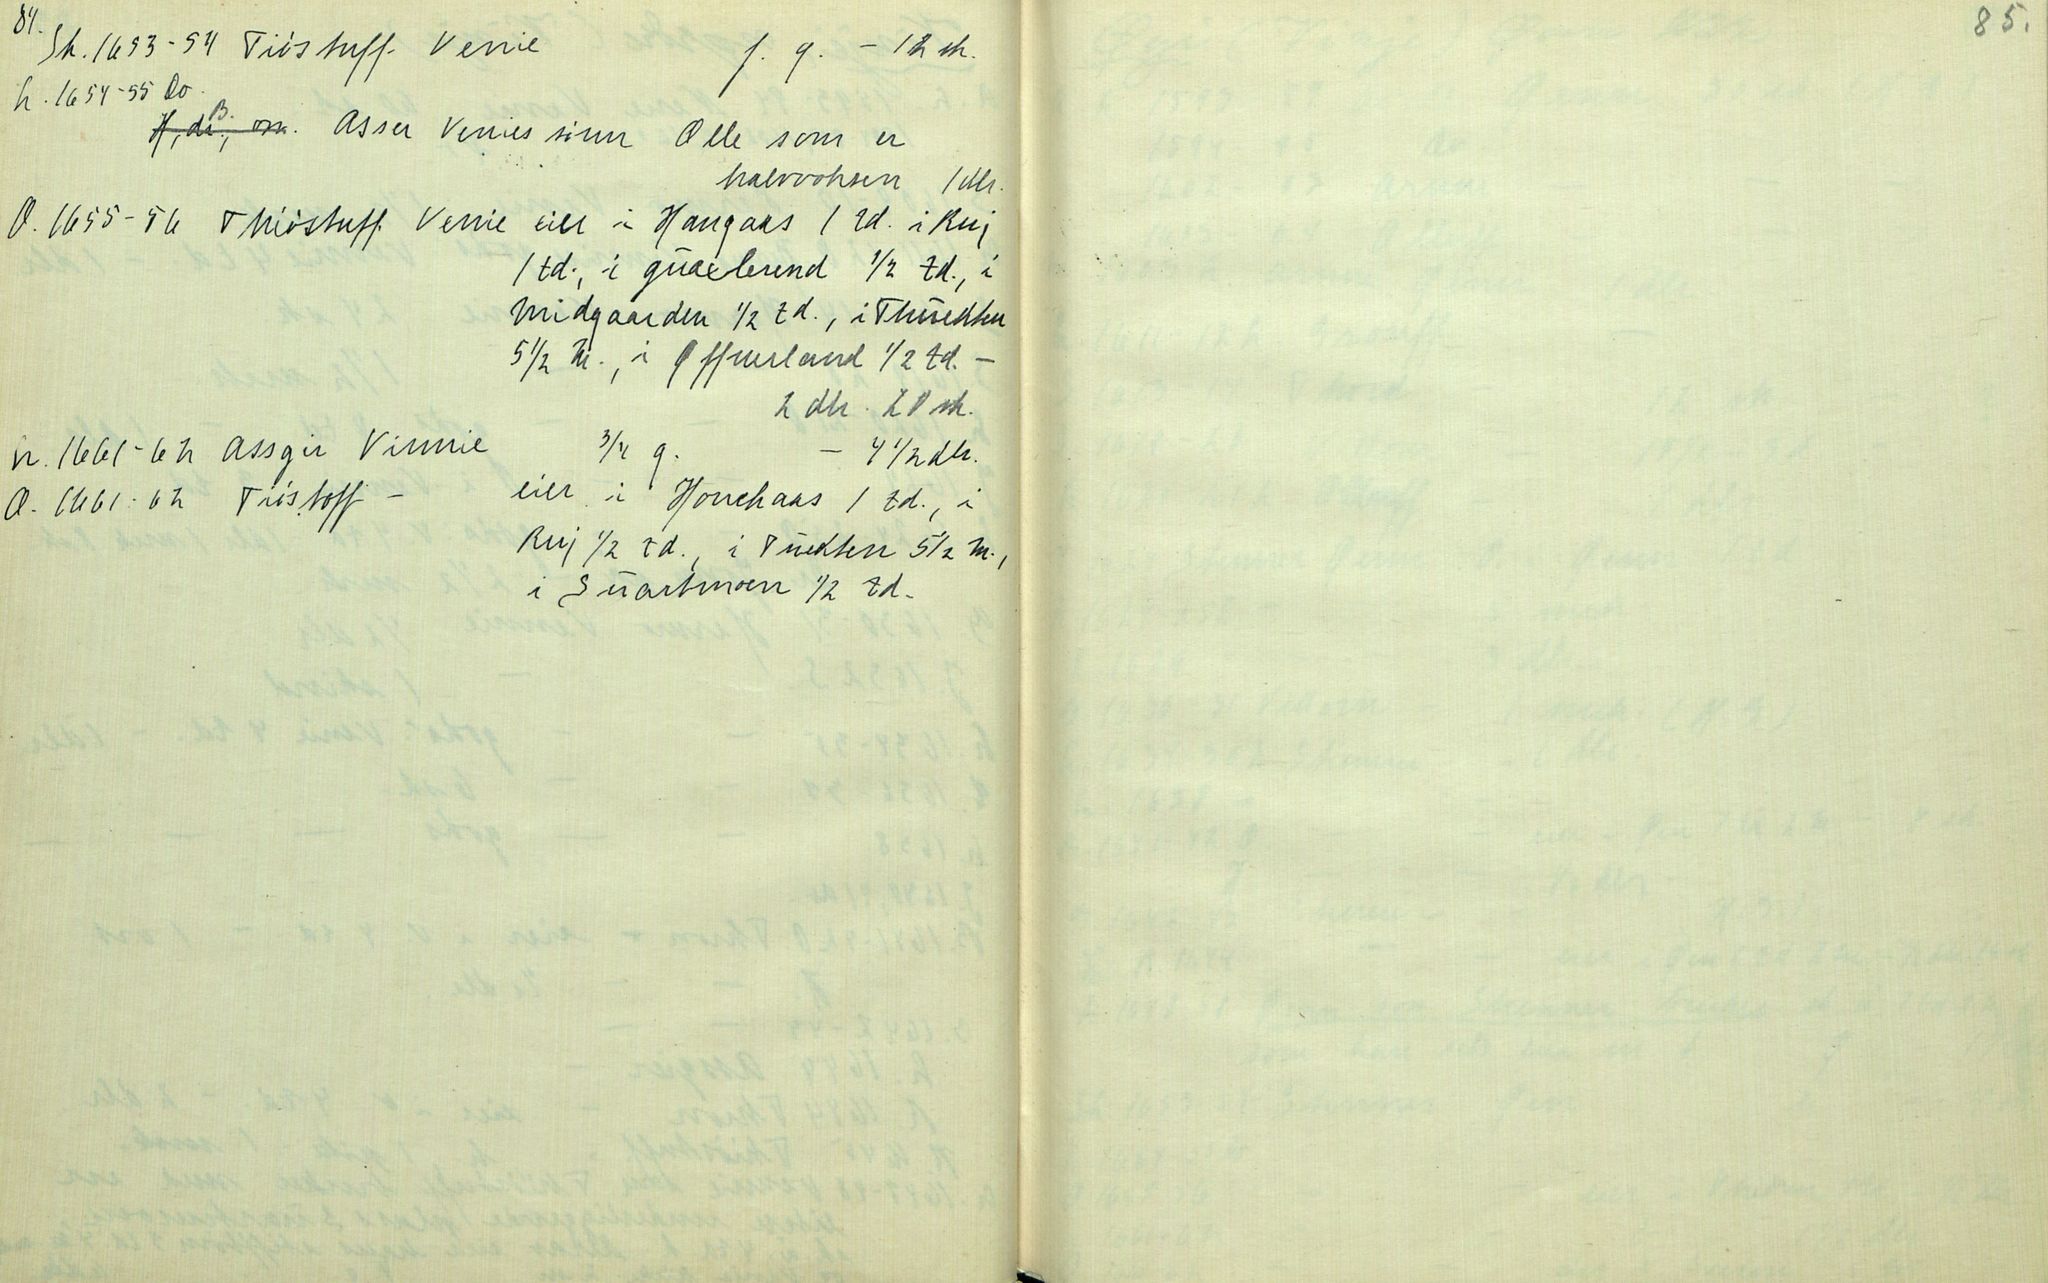 84.
Sk. 1653-54 Tiøstuff Venie f. g. - 12 sk.
h. 1654-55 Do.
B. Asser Venies sønn Olle som er
halvvoksen 1 dlr.
O. 1655-56 Thiøstuff Venie eier i Haugaas 1 td. i Ruj
1 td., i 1/2 td., i
Midgaarden 1/2 td., i Thuedten
5 1/2 m., i Offuerland 1/2 td. -
2 dlr. 20 sk.
h. 1661-62 Assgir Vinnie 3/4 g. - 4 1/2 dlr.
O. 1661-62 Tiøstoff - eier i Houchaas 1 td., i
Ruj 1/2 td., i Tuedten 5 1/2 m.,
i Suartmoen 1/2 td.
85.